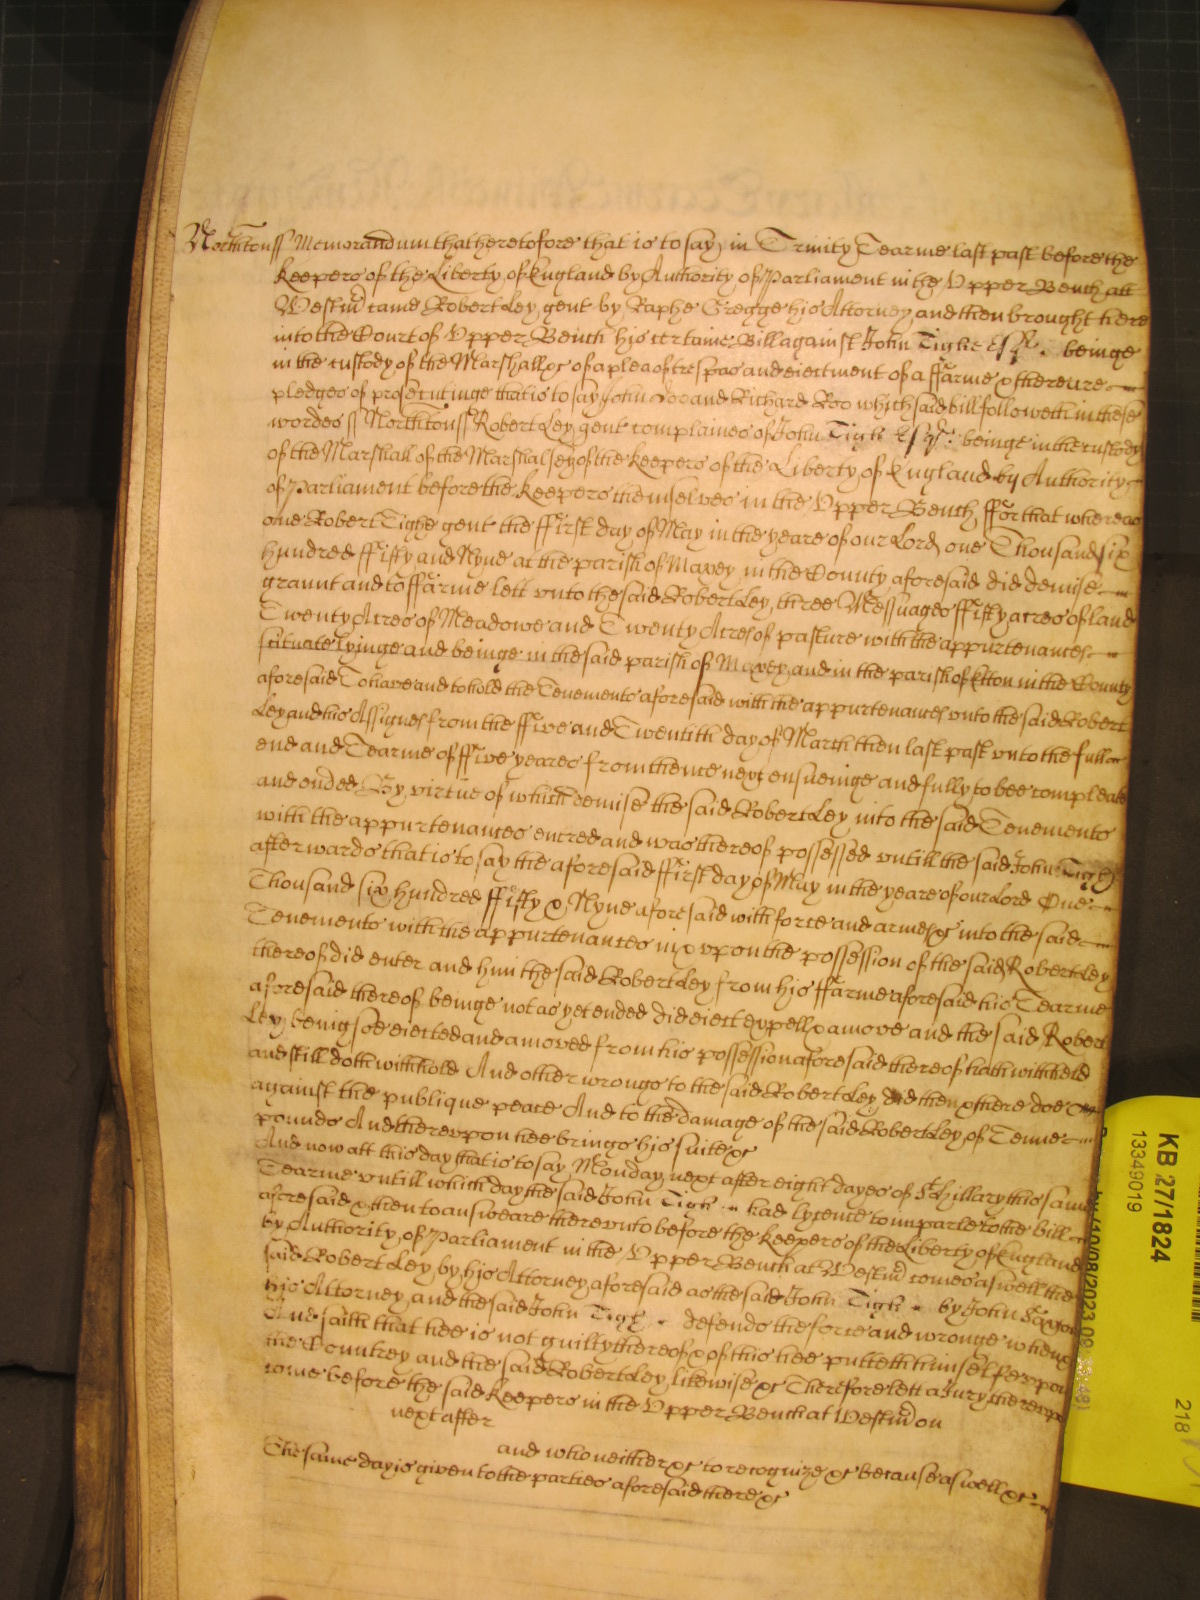 Northtonss Memorandum that heretofore that is to say in Trinity Tearme last past before the
Keepers of the Liberty of England by Authority of Parliament in the Upper Bench att
Westm̃ came Robert Ley gent by Raphe Gregge his Attorney and then brought here
into the Court of Upper Bench his certaine Bill against John Tighe Esqr. beinge
in the custody of the Marshall &c of a plea of trespas and eiectment of a ffarme & there are
pledges of prosecutinge that is to say John Doo and Richard Roo which said bill followeth in these
wordes ss Northtonss Robert Ley gent complaines of John Tigh Esqr. beinge in the custody
of the Marshall of the Marshalsey of the Keepers of the Liberty of England by Authority
of Parliament before the Keepers themselves in the Upper Bench ffor that whereas
one Robert Tighe gent the ffirst day of May in the yeare of our Lord one Thousand six
hundred ffifty and Nyne at the parish of Maxey in the County aforesaid did demise
graunt and to ffarme lett unto the said Robert Ley three Messuages ffifty acres of land
Twenty Acres of Meadowe and Twenty Acres of pasture with the appurtenances
scituate lyinge and beinge in the said parish of Maxey and in the parish of Etton in the County
aforesaid To have and to hold the Tenements aforesaid with the appurtenances unto the said Robert
Ley and his Assignes from the ffive and Twentith day of March then last past unto the full
end and Tearme of ffive yeares from thence next ensueinge and fully to bee compleate
and ended By virtue of which demise the said Robert Ley into the said Tenements
with the appurtenances entred and was thereof possessed untill the said John Tigh
afterwards that is to say the aforesaid ffirst day of May in the yeare of our Lord One
Thousand six hundred ffifty & Nyne aforesaid with force and armes &c into the said
Tenements with the appurtenances in & upon the possession of the said Robert Ley
thereof did enter and him the said Robert Ley from his ffarme aforesaid his Tearme
aforesaid thereof beinge not as yet ended did eiect expell & amove and the said Robert
Ley being soe eiected and amoved from his possession aforesaid thereof hath witheld
and still doth withhold And other wrongs to the said Robert Ley did then & there doe
against the publique peace And to the damage of the said Robert Ley of Tenne
pounds And thereupon hee brings his suite &c
And now att this day that is to say Monday next after eight dayes of St Hillary this same
Tearme untill which day the said John Tigh had lycence to imparle to the bill
aforesaid & then to answeare thereunto before the Keepers of the Liberty of England
by Authority of Parliament in the Upper Bench at Westm̃ comes aswell the
said Robert Ley by his Attorney aforesaid as the said John Tigh by John
his Attorney and the said John Tigh defends the force and wronge when &c
And saith that hee is not guilty thereof & of this hee putteth himself upon
the Countrey and the said Robert Ley likewise &c Therefore lett a Jury thereupon
come before the said Keepers in the Upper Bench at Westm̃ on
next after
and who neither &c to recognize &c because aswell &c
The same day is given to the parties aforesaid there &c
KB 27/1824
13349019
218